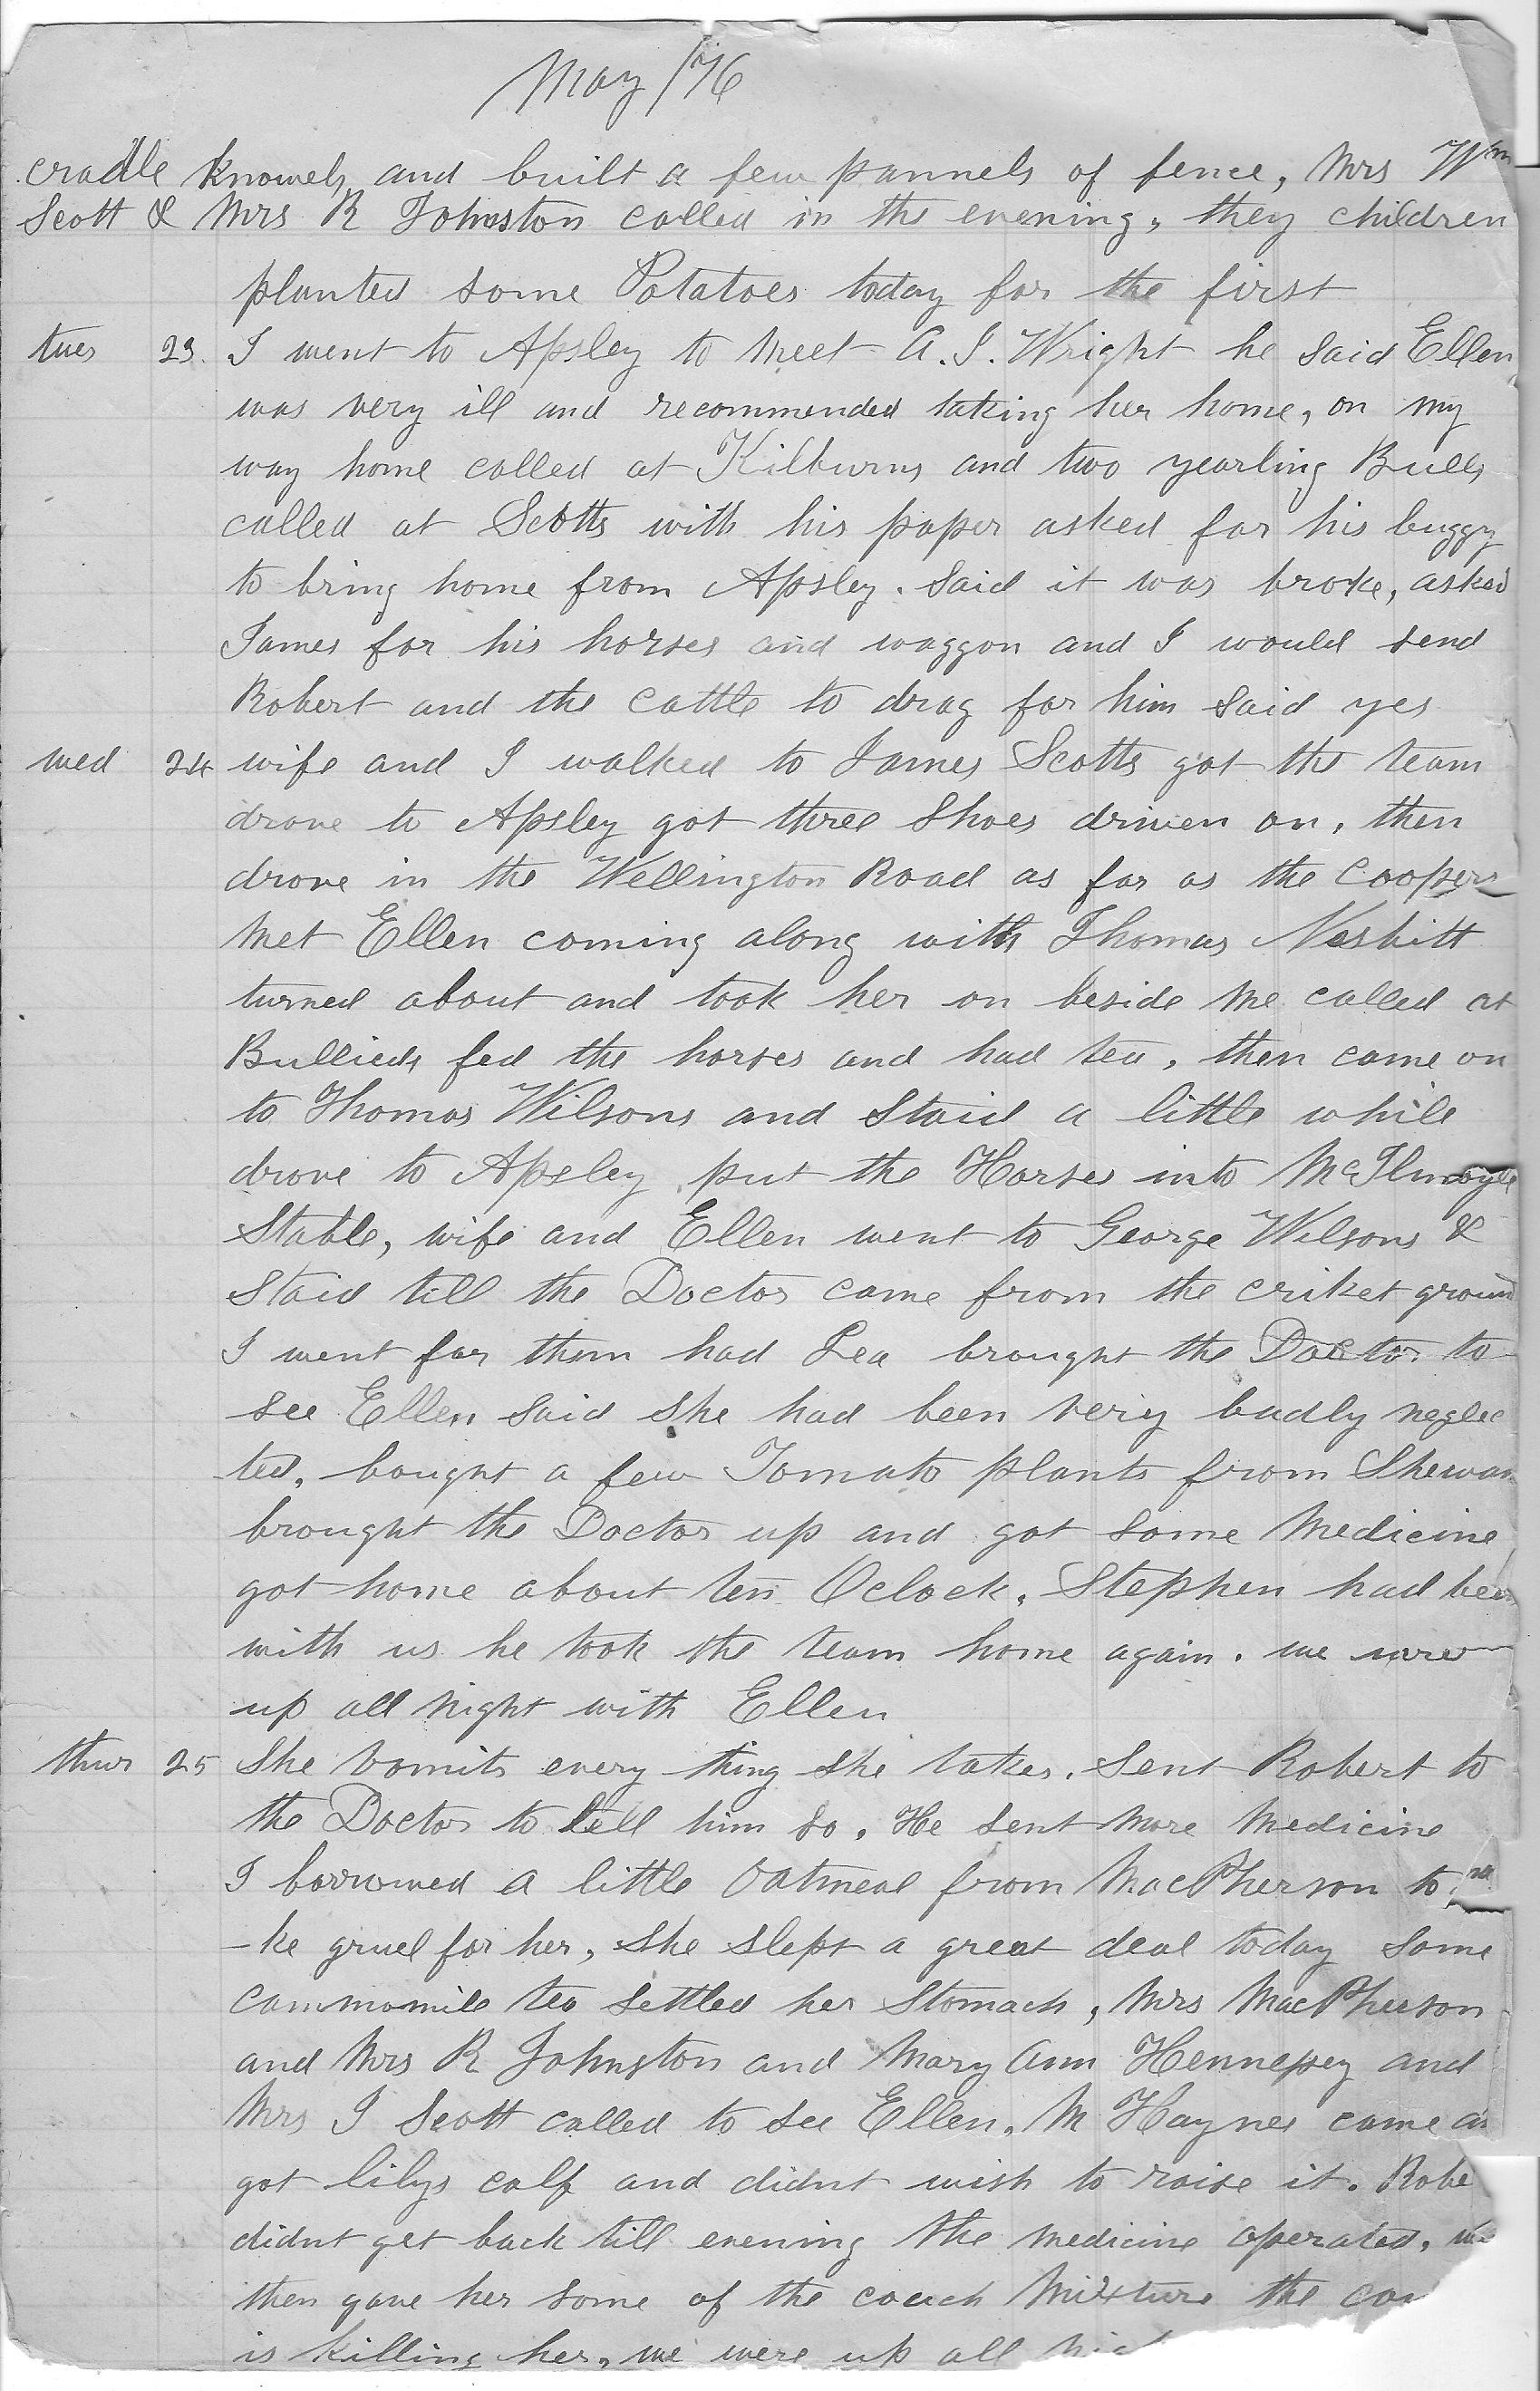 May /76
cradle knowels and built a few pannels of fence, Mrs Wm
Scott & Mrs R Johnston called in the evening, they children
planted some Potatoes today for the first
tues 23. I went to Apsley to meet A. J. Wright he said Ellen
was very ill and recommended taking her home, on my
way home called at Kilburns and two yearling Bulls
called at Scotts with his paper asked for his buggy
to bring home from Apsley. Said it was broke, asked
James for his horses and waggon and I would send
Robert and the cattle to drag for him said yes
wed 24 wife and I walked to James Scotts got the team
drove to Apsley got three Shoes driven on, then
drove in the Wellington Road as far as the Coopers
Met Ellen coming along with Thomas Nesbitt
turned about and took her on beside me called at
Bullieds fed the horses and had tea, then came on
to Thomas Wilsons and Staid a little while
drove to Apsley put the Horses into McIlmoyle
Stable, wife and Ellen went to George Wilsons &
Staid till the Doctor came from the criket ground
I went for them had Tea brought the Doctor to
see Ellen said she had been very badly neglec
ted, bought a few Tomato plants from Shewan
brought the Doctor up and got some Medicine
got home about ten Oclock. Stephen had been
with us he took the team home again. we were
up all night with Ellen
thur 25 She vomits every thing she takes. Sent Robert to
the Doctor to tell him so. He sent more Medicine
I borrowed a little Oatmeal from MacPherson to ma
-ke gruel for her, she slept a great deal today some
cammomile tea settled her stomach, Mrs MacPherson
and Mrs R Johnston and Mary Ann Hennesey and
Mrs J Scott called to see Ellen. M Haynes came an
got lilys calf and didnt wish to raise it. Robe
didnt get back till evening the medicine operated, we
then gave her some of the couch Mixture the cou
is killing her, we were up all nigh